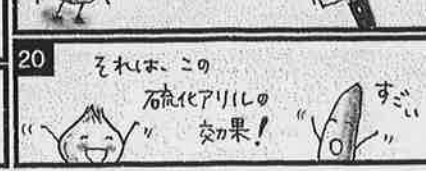 20
それは、この
硫化アリルの
効果!
すごい